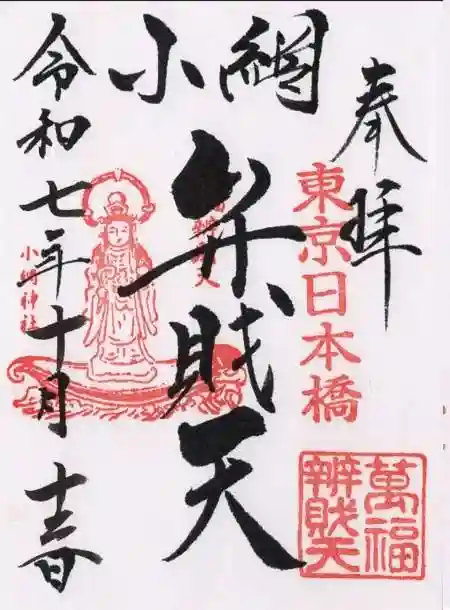 奉拝
東京日本橋
萬福
辨財天
小網
弁財天
令和七年十月十三日
小網神社